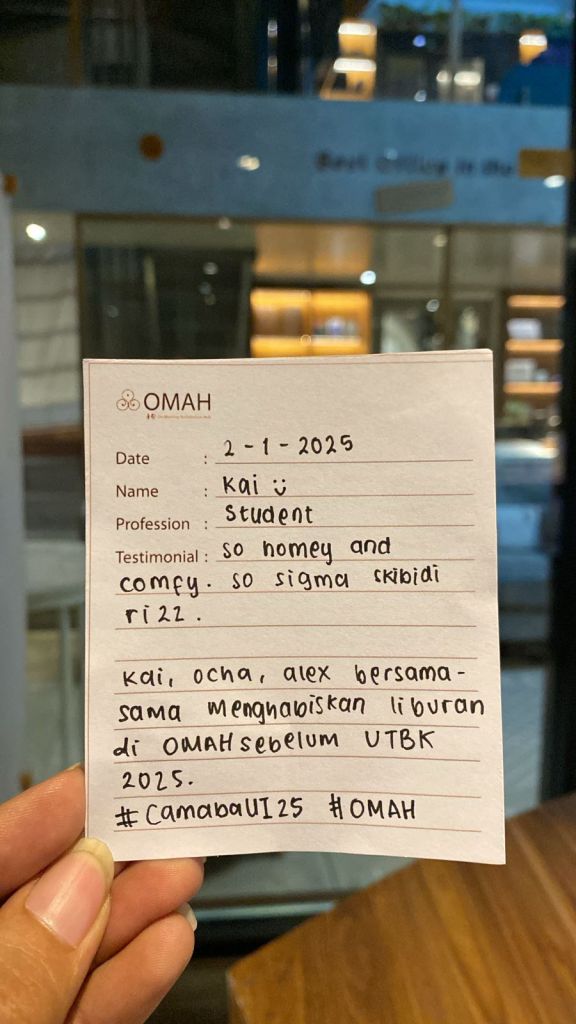 Best Office in the
OMAH
Date : 2 - 1 - 2025
Name : Kai :)
Profession : Student
Testimonial : so homey and
comfy. so sigma skibidi
rizz.
Kai, ocha, alex bersama-
sama menghabiskan liburan
di OMAH sebelum UTBK
2025.
#CamabaUI25 #OMAH